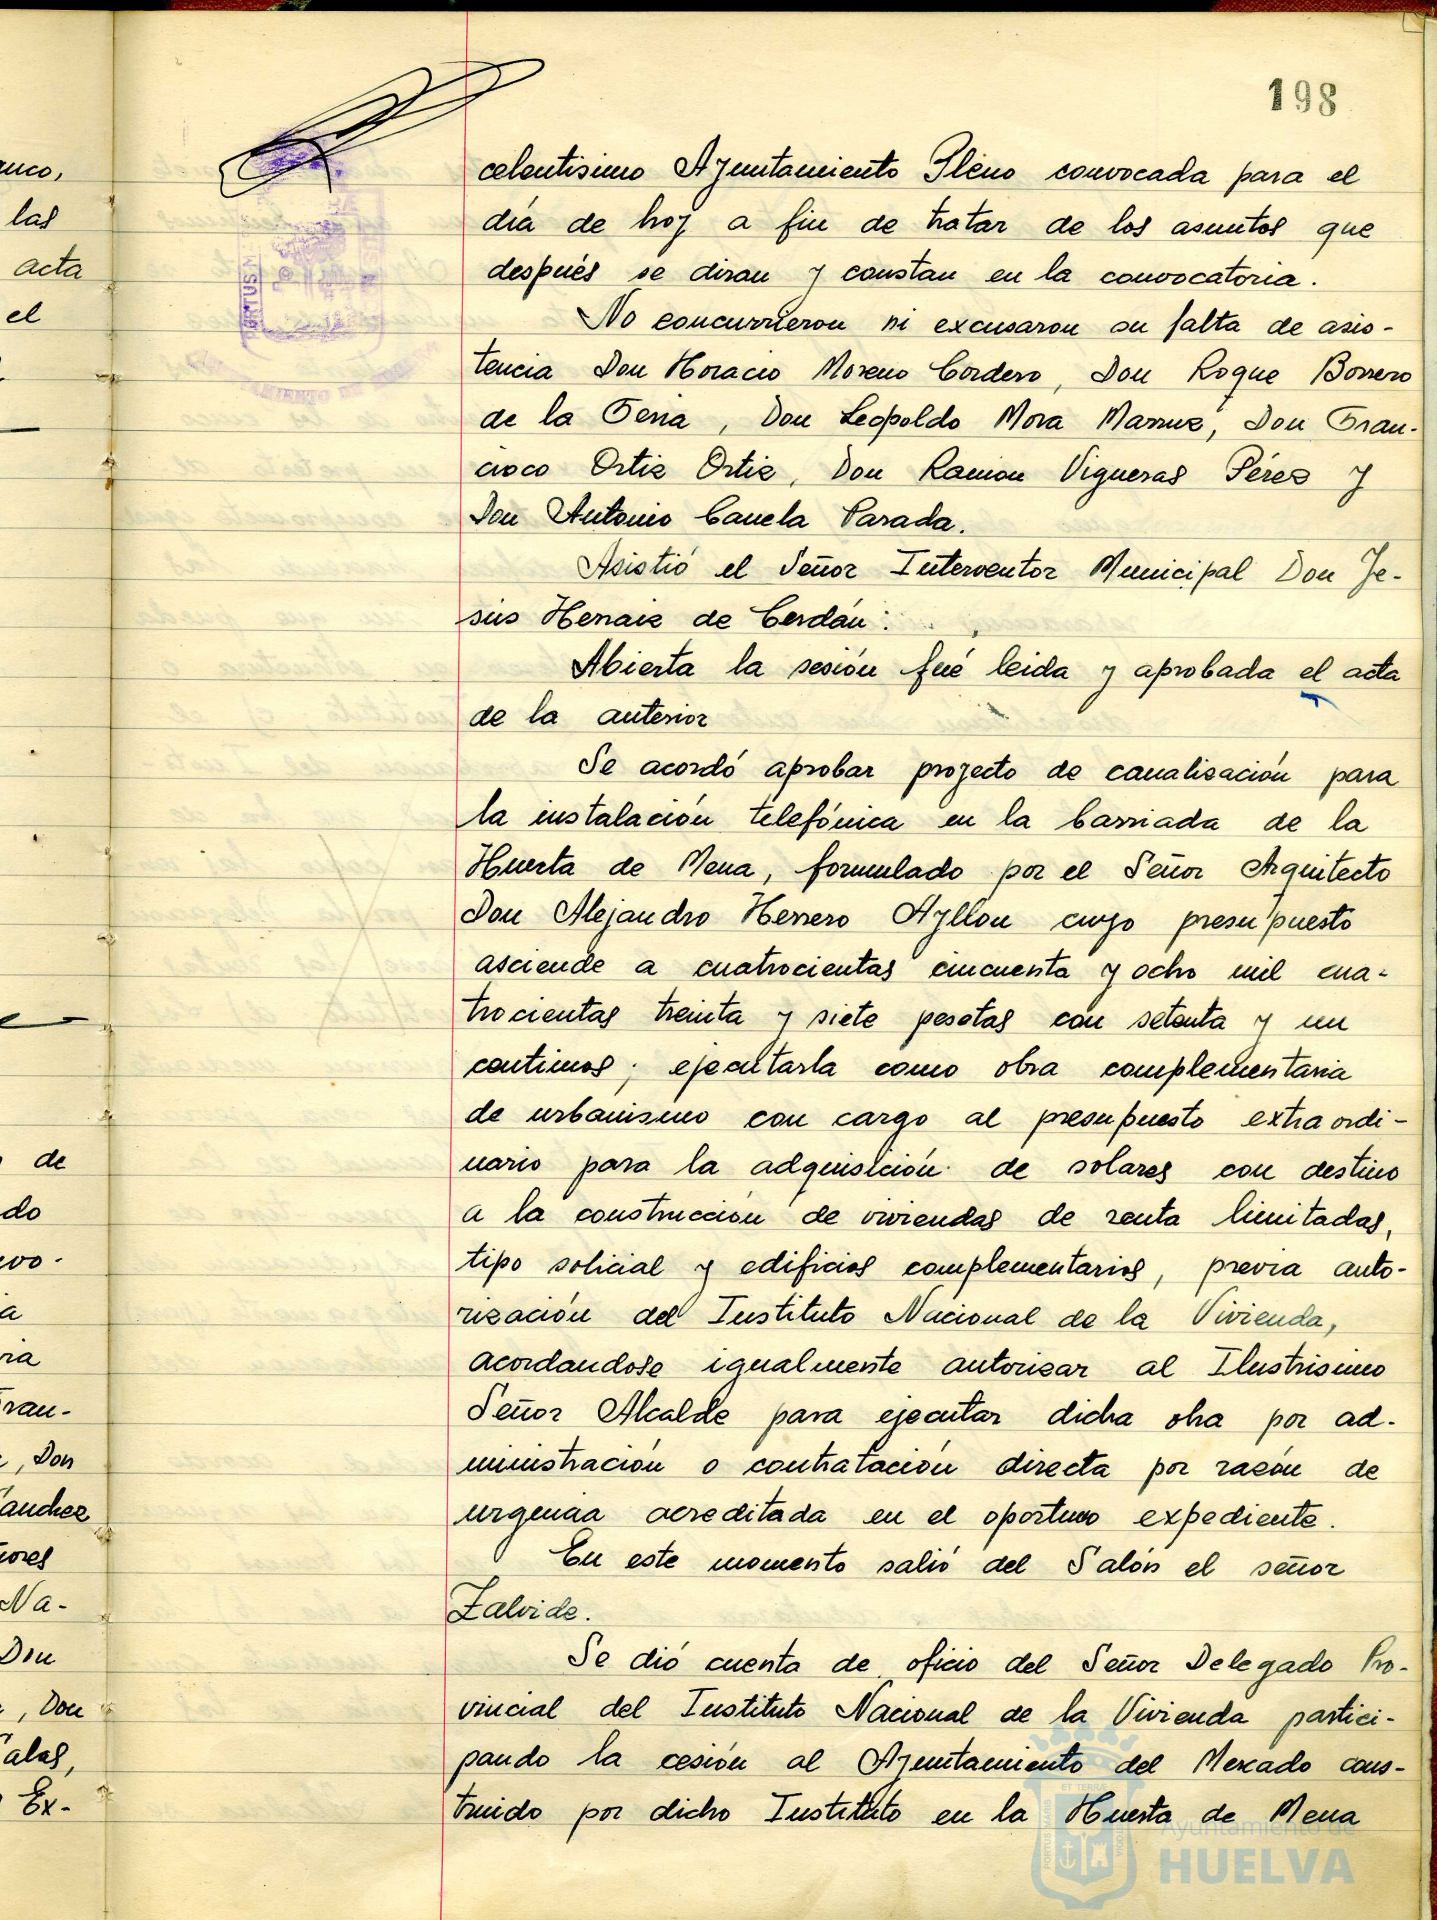 198
celentisimo Ayuntamiento Pleno convocada para el
día de hoy a fin de tratar de los asuntos que
después se diran y constan en la convocatoria.
No concurrieron ni excusaron su falta de asis-
tencia Don Horacio Moreno Cordero, Don Roque Borrero
de la Feria, Don Leopoldo Mora Marruz, Don Fran-
cisco Ortiz Ortiz, Don Ramon Vigueras Pérez y
Don Antonio Canela Parada.
Asistió el Señor Interventor Municipal Don Je-
sús Hernaiz de Cerdán.
Abierta la sesión fué leida y aprobada el acta
de la anterior
Se acordó aprobar proyecto de canalización para
la instalación telefónica en la barriada de la
Huerta de Mena, formulado por el Señor Arquitecto
Don Alejandro Herrero Ayllon cuyo presupuesto
asciende a cuatrocientas cincuenta y ocho mil cua-
trocientas treinta y siete pesetas con setenta y un
centimos; ejecutarla como obra complementaria
de urbanismo con cargo al presupuesto extraordi-
nario para la adquisición de solares con destino
a la construcción de viviendas de renta limitadas,
tipo solicial y edificios complementarios, previa auto-
rización del Instituto Nacional de la Vivienda,
acordandose igualmente autorizar al Ilustrisimo
Señor Alcalde para ejecutar dicha obra por ad-
ministración o contratación directa por razón de
urgencia acreditada en el oportuno expediente.
En este momento salió del Salón el señor
Zalvide.
Se dió cuenta de oficio del Señor Delegado Pro-
vincial del Instituto Nacional de la Vivienda partici-
pando la cesión al Ayuntamiento del Mercado cons-
truido por dicho Instituto en la Huerta de Mena
las
acta
el
de
do
ria
ran-
, Don
anchez
Na-
Don
, Don
alas,
Ex-
PORTUS M
ET TERRÆ
Ayuntamiento de
HUELVA